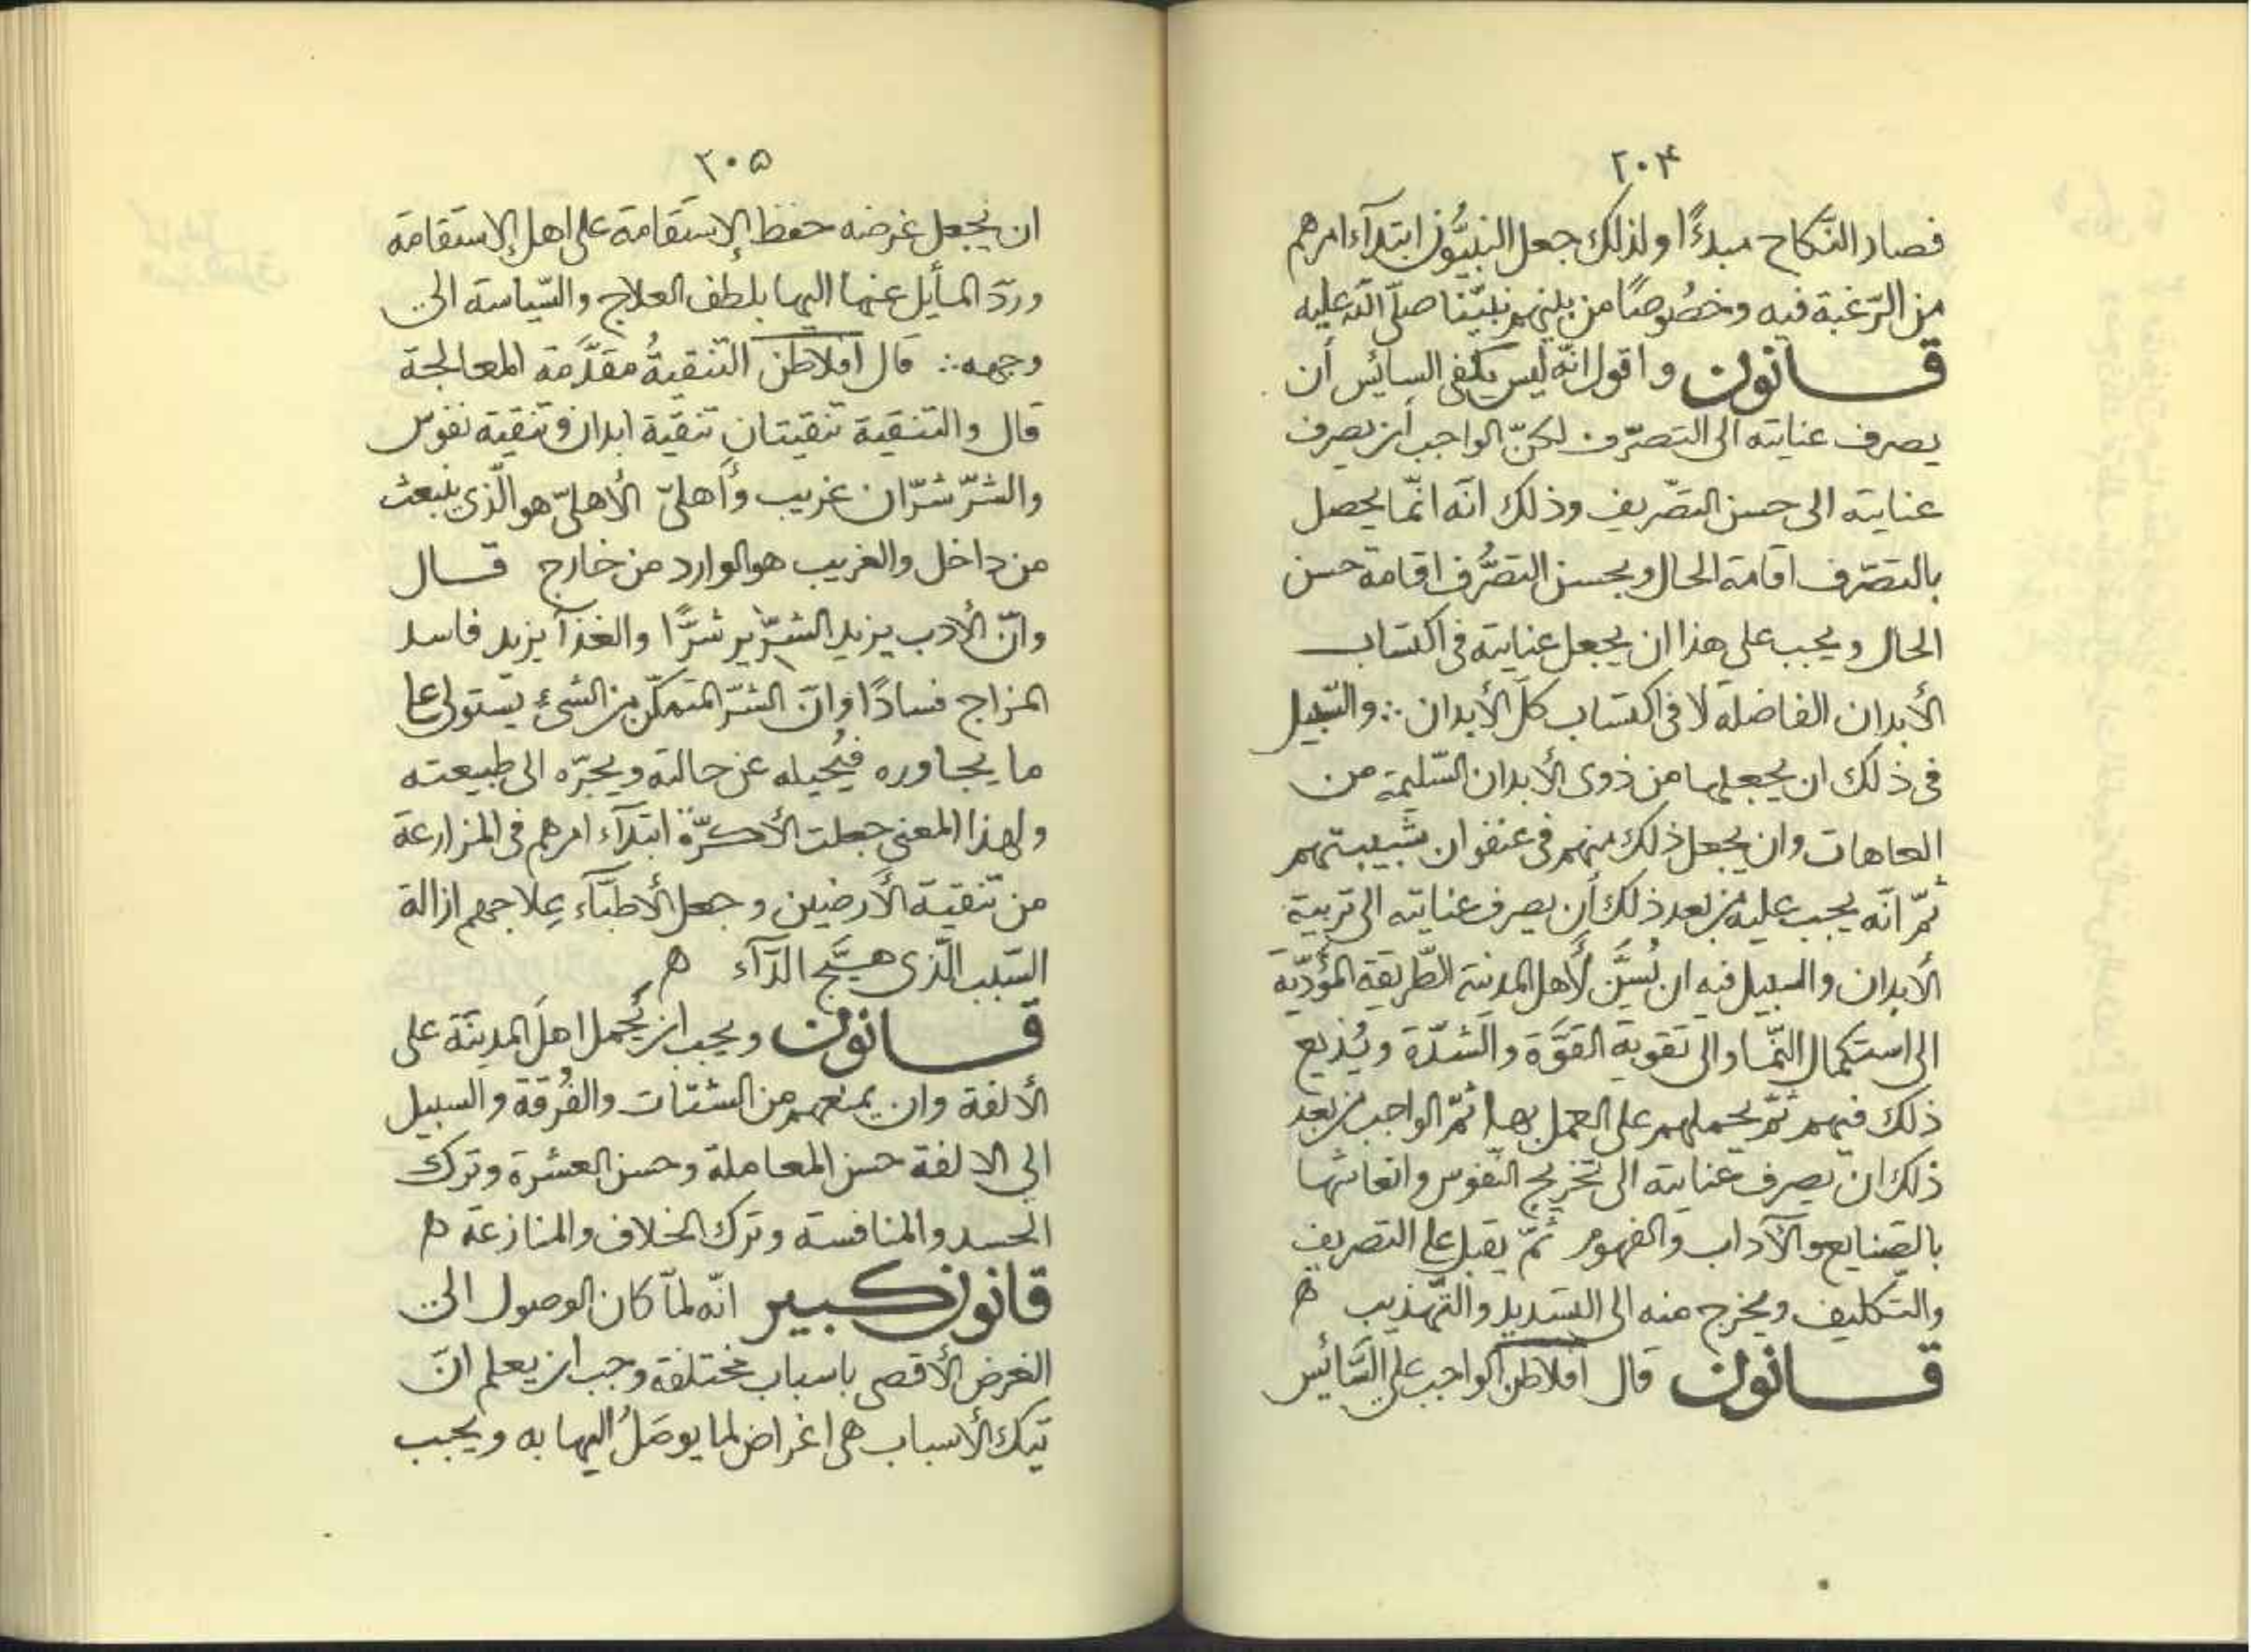 ٢٠۴
فصار النّكاح مبدءًا ولذلك جعل النبيُّون ابتدآء امرهم
من الرّغبة فيه وخصُوصًا من بينهم نبيّنا صلّى الله عليه
قانون واقول انّه ليس يكفى السائس أن
يصرف عنايته الى التصرّف لكنّ الواجب أن يصرف
عنايته الى حسن التصّريف وذلك انّه انّما يحصل
بالتصّرف اقامة الحال وبحسن التصُّرف اقامة حسن
الحال ويجب على هذا ان يجعل عنايته فى اكتساب
الأبدان الفاضلة لا فى اكتساب كلّ الأبدان ∴ والسّبيل
فى ذلك ان يجعلها من ذوى الأبدان السّليمة من
العاهات وان يجعل ذلك منهم فى عنفوان شبيبتهم
ثمّ انّه يجب عليه من بعد ذلك أن يصرف عنايته الى تربية
الأبدان والسبيل فيه ان يُسَنَّ لأهل المدينة الطّريقة المؤدّية
الى استكمال النّما والى تقوية القوّة والشّدّة ويُذيع
ذلك فيهم ثمّ يحملهم على العمل بها ثمّ الواجب من بعد
ذلك ان يصرف عنايته الى تخريج النّفوس وانعاشها
بالصّنايع والآداب والفهوم ثمّ يقبل على التصريف
والتّكليف ويخرج منه الى التسديد والتّهذيب ه
قانون قال افلاطن الواجب على السَّائِس
٢٠۵
ان يجعل غرضه حفظ الإستقامة على اهل الإستقامة
وردّ المأيل عنها اليها بلطف العلاج والسّياسة الى
وجهه ∴ قال افلاطن التنقيةُ مقدّمة المعالجة
قال والتنقية تنقيتان تنقية ابدان وتنقية نفوس
والشرّ شرّان غريب وأهلىّ الأهلىّ هو الّذى ينبعث
من داخل والغريب هو الوارد من خارج قال
وانّ الأدب يزيد الشرّير شرًّا والغذآ يزيد فاسد
المزاج فسادًا وانّ الشرّ المتمكّن من الشئ يستولى على
ما يجاوره فيُحيله عن حالته ويجرّه الى طبيعته
ولهذا المعنى جعلت الأكرّة ابتدآء امرهم فى المزارعة
من تنقية الأرضين وجعل الأطبّآء عِلاجهم ازالة
السّبب الّذى هيَّج الدّآء ه
قانون ويجب ان يُحمل اهلَ المدينة على
الألفة وان يمنعهم من الشتات والفُرقة والسبيل
الى الالفة حسن المعاملة وحسن العشرة وترك
الحسد والمنافسة وترك الخلاف والمنازعة ه
قانون كبير انّه لمّا كان الوصول الى
الغرض الأقصى باسباب مختلفة وجب ان يعلم انّ
تيك الأسباب هى اغراض لما يوصَلُ اليها به ويجب